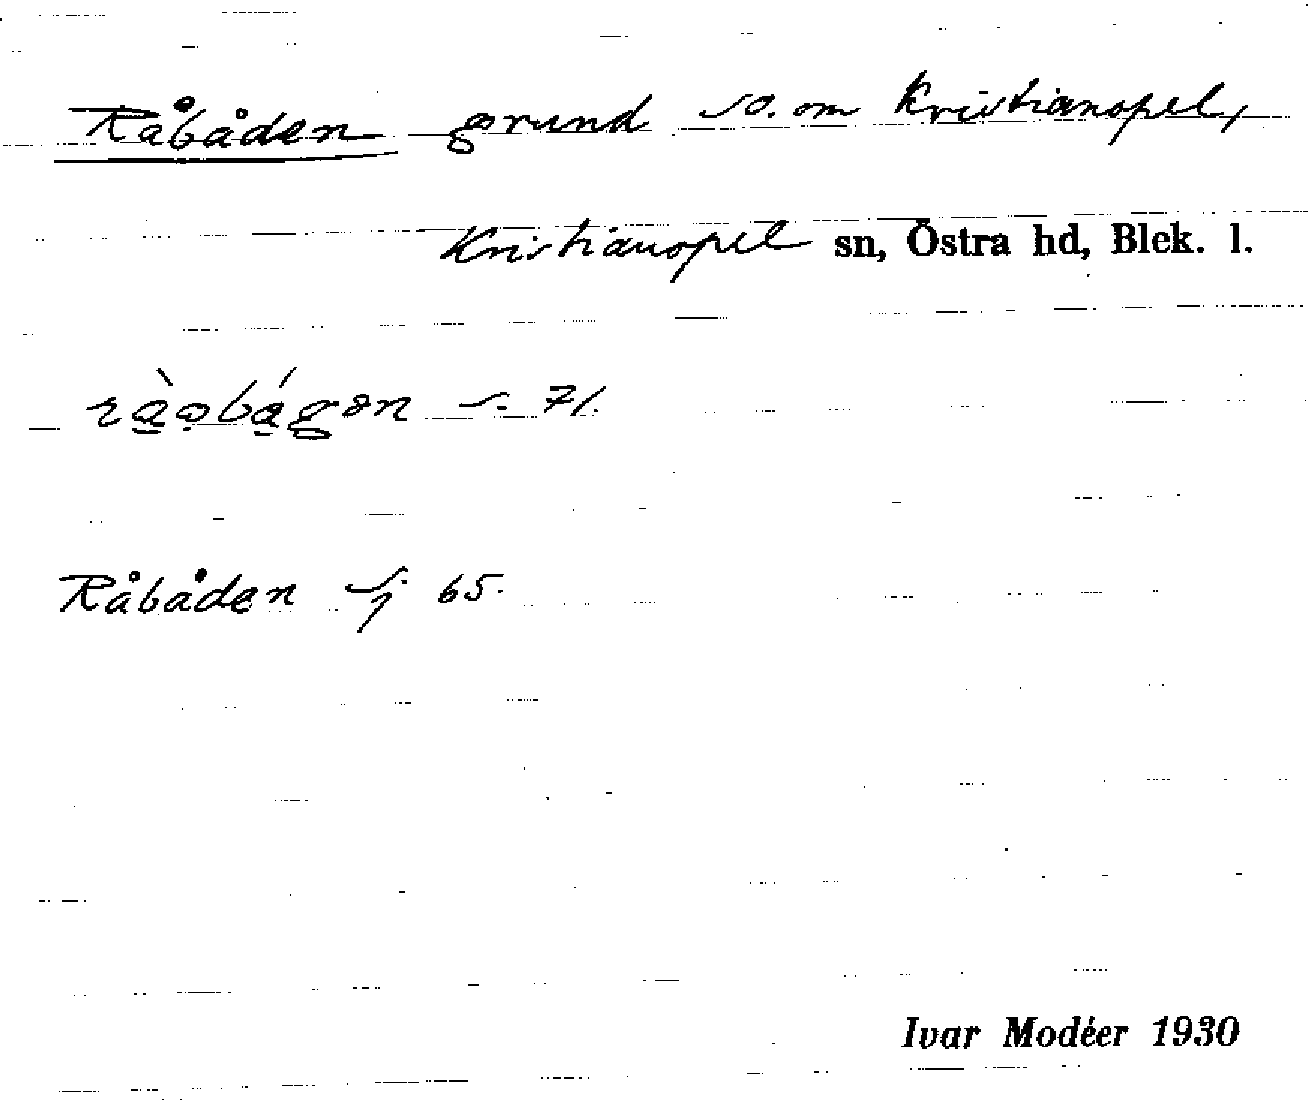 Råbåden grund so. om Kristianopel,
Kristianopel sn, Östra hd, Blek. l.
s. 71.
Råbåden sj 65.
Ivar Modéer 1930